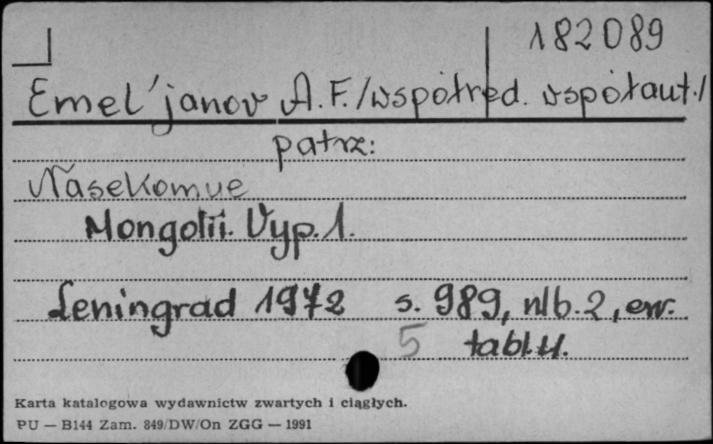 182089
Emel'janov A.F. /współred. współaut./
patrz:
Nasekomye
Mongolii. Vyp. 1.
Leningrad 1972 s. 989, nlb. 2, err.
5 tabl. 4.
Karta katalogowa wydawnictw zwartych i ciągłych.
PU — B144 Zam. 849/DW/On ZGG — 1991